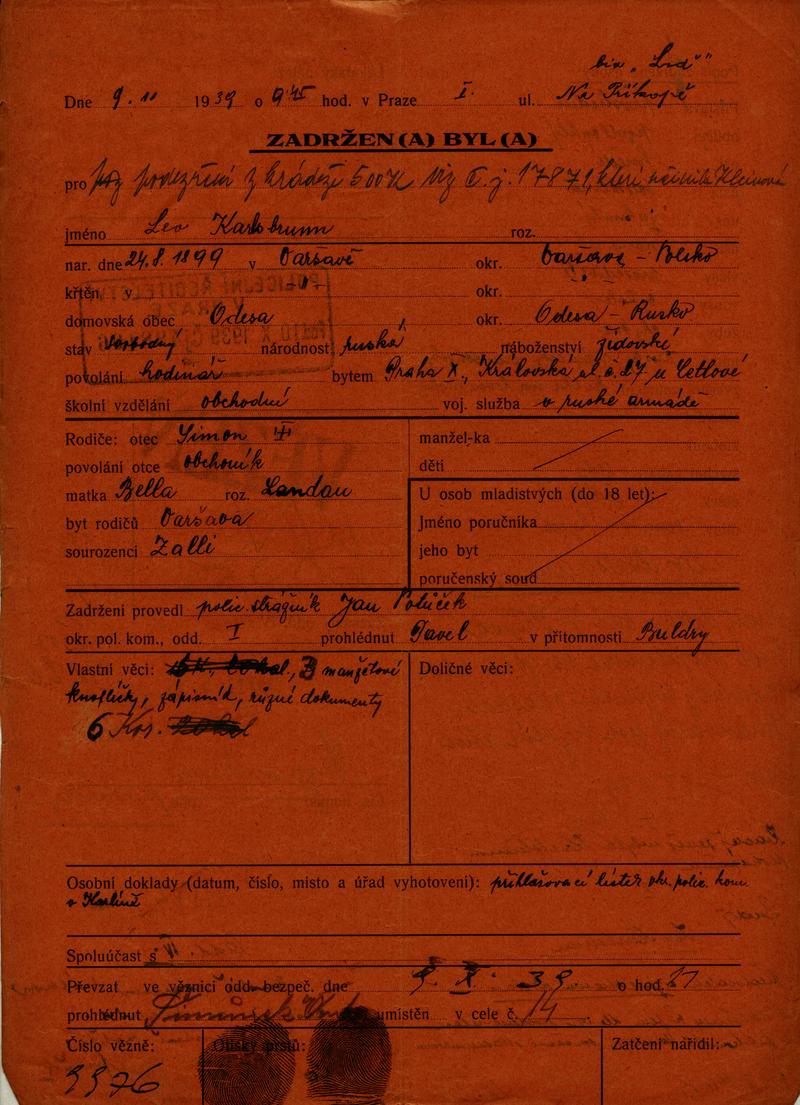 bio „Lid"
Dne 9. 11 1939 o 9 45 hod. v Praze I. ul. Na Příkopě
ZADRŽEN(A) BYL(A)
pro podezření z krádeže 500 K viz č. j. 17871, kteri Kleinová
jméno Leo Karlsbrunn roz.
nar. dne 24.8. 1899 v Varšavě okr. Varšava - Polsko
křtěn v -"- okr. -"-
domovská obec Odesa okr. Odesa - Rusko
stav svobodný národnost ruská náboženství židovské
povolání hodinář bytem Praha X., Královská ul. č. 27 u Cetlové
školní vzdělání obchodní voj. služba v ruské armádě
Rodiče: otec Simon manžel-ka
povolání otce obchoník děti
matka Bella roz. Landau U osob mladistvých (do 18 let):
byt rodičů Varšava Jméno poručníka
sourozenci Zalli jeho byt
poručenský soud
Zadržení provedl polic. strážník Jan Potůček
okr. pol. kom., odd. I prohlédnut Pavel v přítomnosti Buldry
Vlastní věci: 3 manžetové
knoflíčky, zápisník, různé dokumenty
6 Kor.
Doličné věci:
Osobní doklady (datum, číslo, místo a úřad vyhotovení): přihlašovací lístek okr. polic. kom.
v Karlíně
Spoluúčast s
Převzat ve věznici odd. bezpeč. dne 9. X. 39 o hod. 17
prohlédnut umístěn v cele č. 14
Číslo vězně: Otisky prstů: Zatčení nařídil:
9976